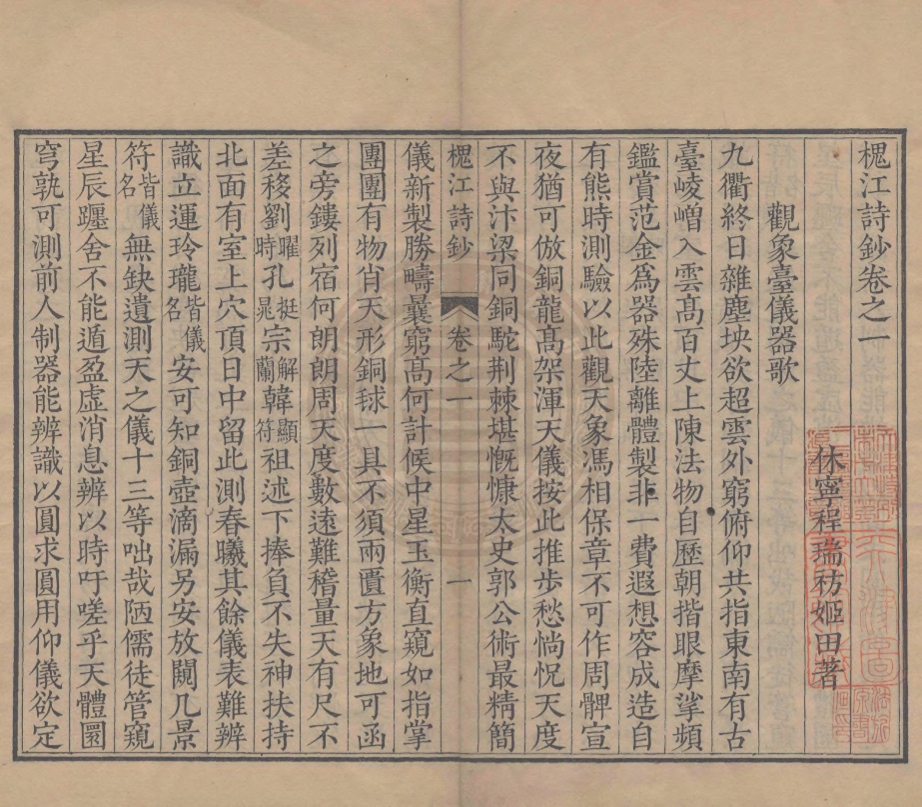 槐江詩鈔卷之一
休寧程瑞祊姬田著
觀象臺儀器歌
九衢終日雜塵坱欲超雲外窮俯仰共指東南有古
臺崚嶒入雲高百丈上陳法物自歷朝揩眼摩挲頻
鑑賞范金爲器殊陸離體製非一費遐想容成造自
有熊時測驗以此觀天象馮相保章不可作周髀宣
夜猶可倣銅龍高架渾天儀按此推步愁惝怳天度
不與汴梁同銅駝荆棘堪慨慷太史郭公術最精簡
槐江詩鈔 卷之一 一
儀新製勝疇曩窮高何計候中星玉衡直窺如指掌
團團有物肖天形銅球一具不須兩匱方象地可函
之旁鏤列宿何朗朗周天度數遠難稽量天有尺不
差移劉曜時孔挺晁宗解蘭韓顯符祖述下捧負不失神扶持
北面有室上穴頂日中留此測春曦其餘儀表難辨
識立運玲瓏皆儀名安可知銅壺滴漏另安放闚几景
符皆儀名無缺遺測天之儀十三等咄哉陋儒徒管窺
星辰躔舍不能遁盈虛消息辨以時吁嗟乎天體圜
穹孰可測前人制器能辨識以圓求圓用仰儀欲定